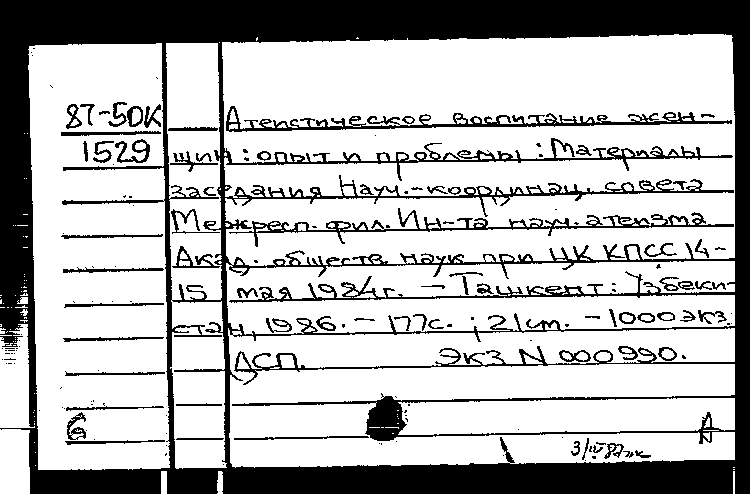 87-5DK Атеистическое воспитание жен-
1529 щин : опыт и проблемы : Материалы
заседания Науч.-координац. совета
Межресп. фил. Ин-та науч. атеизма
Акад. обществ. наук при ЦК КПСС 14-
15 мая 1984г. - Ташкент: Узбеки-
стан, 1986. - 177с. ; 21см. - 1000экз.
ДСП. ЭКЗ N 000990.
6 А
3/IV 87